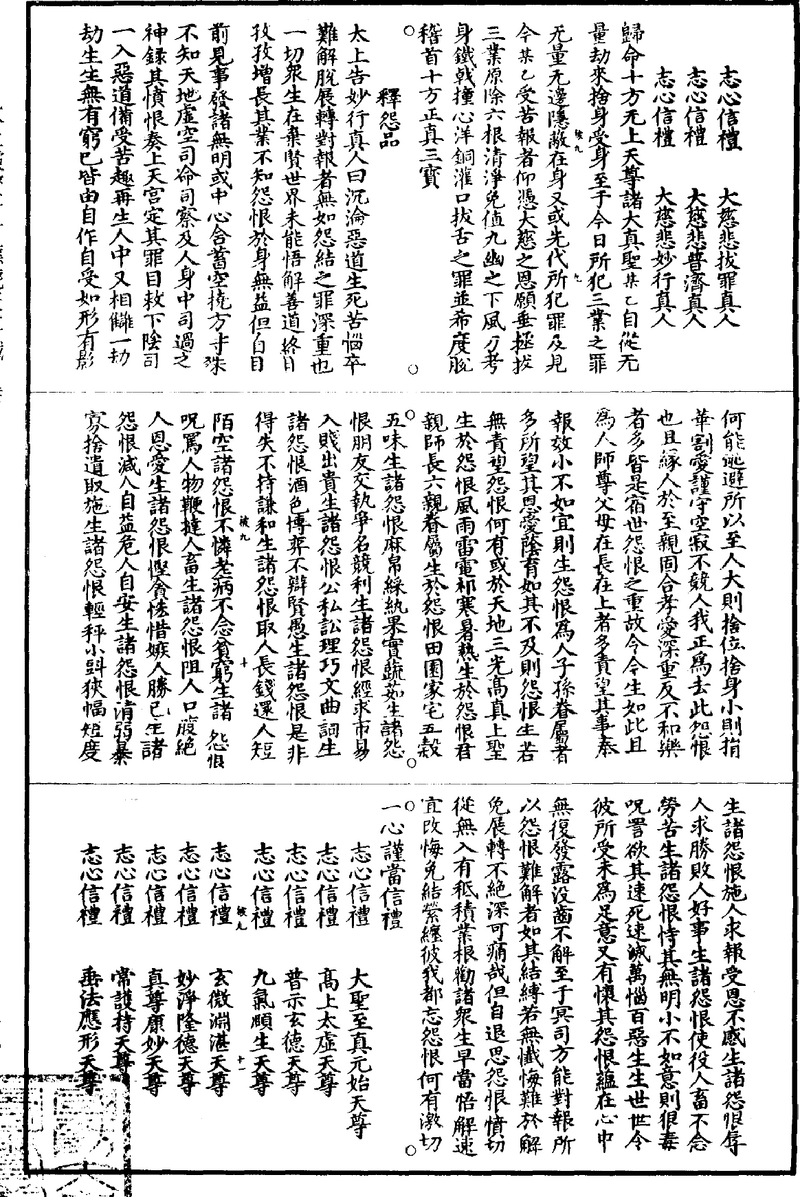 志心信禮　大慈悲拔罪真人
志心信禮　大慈悲普濟真人
志心信禮　大慈悲妙行真人
歸命十方无上天尊諸大真聖某乙自從无
量劫來捨身受身至于今日所犯三業之罪
无量无邊隱蔽在身又或先代所犯罪及見
今某乙受苦報者仰憑大慈之恩願垂拯拔
三業原除六根清淨免值九幽之下風刀考
身鐵戟撞心洋銅灌口拔舌之罪並希度脫
稽首十方正真三寶
釋怨品
太上告妙行真人曰沉淪惡道生死苦惱卒
難解脫展轉對報者無如怨結之罪深重也
一切眾生在棄賢世界未能悟解善道終日
孜孜增長其業不知怨恨於身無益但自目
前見事發諸無明或中心含蓄空撓方寸殊
不知天地虛空司命司察及人身中司過之
神錄其憤恨奏上天宮定其罪目敕下陰司
一入惡道備受苦趣再生人中又相讎一劫
劫生生無有窮已皆由自作自受如形有影
何能逃避所以至人大則捨位捨身小則捐
華割愛謹守空寂不競人我正為去此怨恨
也且緣人於至親固合孝愛深重反不和樂
者多皆是宿世怨恨之重故令今生如此且
為人師尊父母在長在上者多責望其事奉
報效小不如宜則生怨恨為人子孫眷屬者
多所望其恩愛蔭育如其不及則怨恨生若
無責望怨恨何有或於天地三光高真上聖
生於怨恨風雨雷電祁寒暑熱生於怨恨君
親師長六親眷屬生於怨恨田園家宅五穀
五味生諸怨恨麻帛綵紈果實蔬茹生諸怨
恨朋友交執爭名競利生諸怨恨經求市易
入賤出貴生諸怨恨公私訟理巧文曲詞生
諸怨恨酒色博弈不辯賢愚生諸怨恨是非
得失不持謙和生諸怨恨取人長錢還人短
陌空諸怨恨不憐老病不念貧窮生諸怨恨
呪罵人物鞭撻人畜生諸怨恨阻人口腹絕
人恩愛生諸怨恨慳貪恡惜嫉人勝己生諸
怨恨減人自益危人自安生諸怨恨淩弱暴
寡捨遺取施生諸怨恨輕秤小斗狹幅短度
生諸怨恨施人求報受恩不感生諸怨恨辱
人求勝敗人好事生諸怨恨使役人畜不念
勞苦生諸怨恨恃其無明小不如意則狠毒
呪詈欲其速死速滅萬惱百惡生生世世令
彼所受未為足意又有懷其怨恨蘊在心中
無復發露沒齒不解至于冥司方能對報所
以怨恨難解者如其結縛若無懺悔難於解
免展轉不絕深可痛哉但自退思怨恨憤切
從無入有秪積業根勸諸眾生早當悟解速
宜改悔免結縈纏彼我都忘怨恨何有激切
一心謹當信禮
志心信禮　大聖至真元始天尊
志心信禮　高上太虛天尊
志心信禮　普示玄德天尊
志心信禮　九氣頤生天尊
志心信禮　玄微淵湛天尊
志心信禮　妙淨隆德天尊
志心信禮　真尊廣妙天尊
志心信禮　常護持天尊
志心信禮　垂法應形天尊